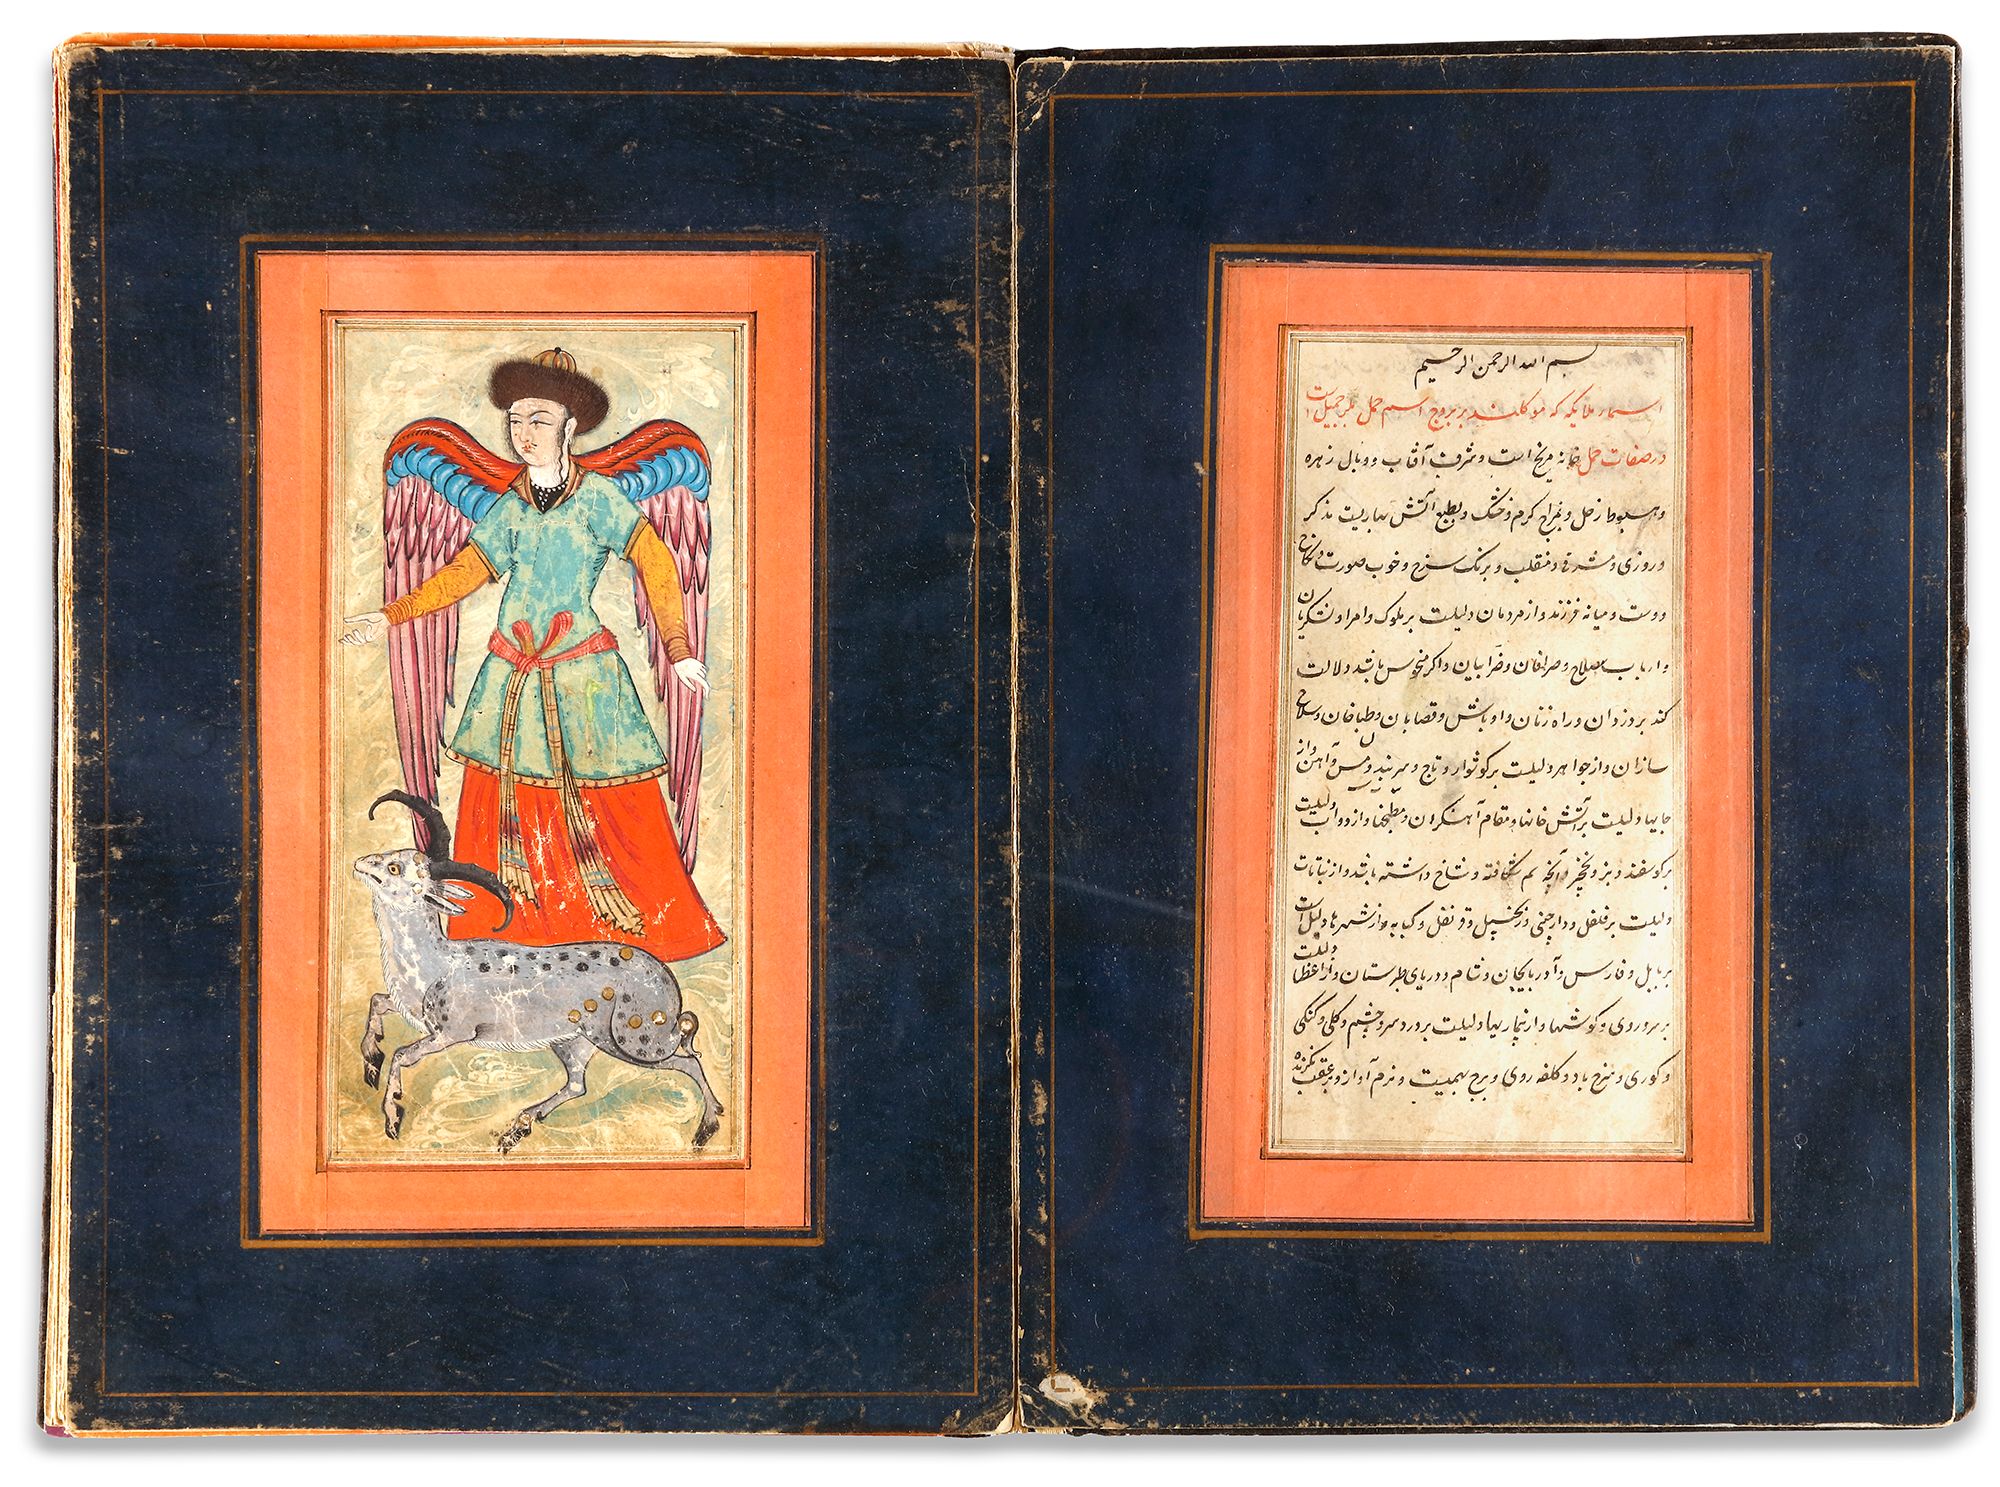 بسم الله الرحمن الرحیم
اسماء ملایکه که موکلند بر بروج اسم حمل است
در صفات حمل خانه مریخ است و شرف آفتاب و وبال زهره
و هبوط زحل و بمزاج کرم و خشک و بطبع آتش بهاریست مذکر
و روزی و مشرقی و منقلب و برنک سرخ و خوب صورت و نکاح
دوست و میانه فرزند و از مردمان دلیلست بر ملوک و امرا و لشکریان
و ارباب سلاح و صرافان و ضرابان و اکر منحوس باشد دلالت
کند بر دزدان و راه زنان و اوباش و قصابان و طباخان و سلاح
سازان و از جواهر دلیلست بر کوشوار و تاج و مس و آهن و از
جایها دلیلست بر آتش خانها و مقام آهنکران و مطبخها و از دواب دلیلست
بر کوسفند و بز و نخچیر و آنچه سم شکافته و شاخ داشته باشد و از نباتات
دلیلست بر فلفل و دارچینی و زنجبیل و قرنفل و از شهرها دلیل است
بر بابل و فارس و آذربایجان و شام و دریای طبرستان و از اعضا دلیلست
بر سر و روی و کوشها و از بیماریها دلیلست بر درد سر و چشم و کلی و کنکی
و کوری و سرخ باد و کلفه روی و برج بهیمیست و نرم آواز و بر عقب نکرنده